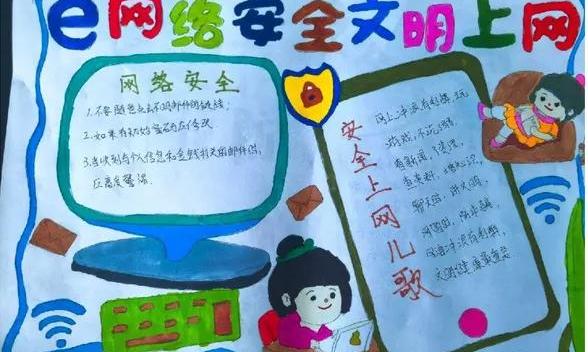 e网络安全文明上网
网络安全
1.不要随意点击不明邮件的链接;
2.如果有初始密码应修改
3.当收到与个人信息和金钱相关的邮件时,
应高度警惕
安全上网儿歌
网上冲浪有利弊,玩
游戏,不沉迷
看新闻,
查资料,增知识,
聊天时,讲文明,
网购时,
网海冲浪有利弊
文明健康最重要